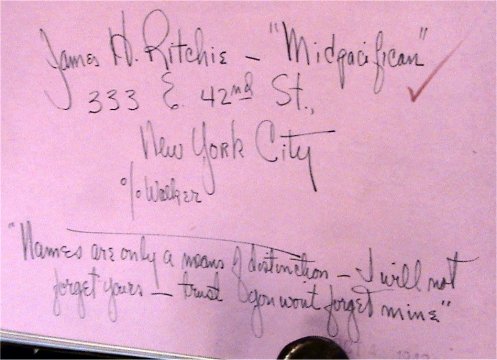 James H. Ritchie – "Midpacifican"
333 E. 42nd St.,
New York City
% Walker
"Names are only a means of distinction – I will not
forget yours – trust you wont forget mine"